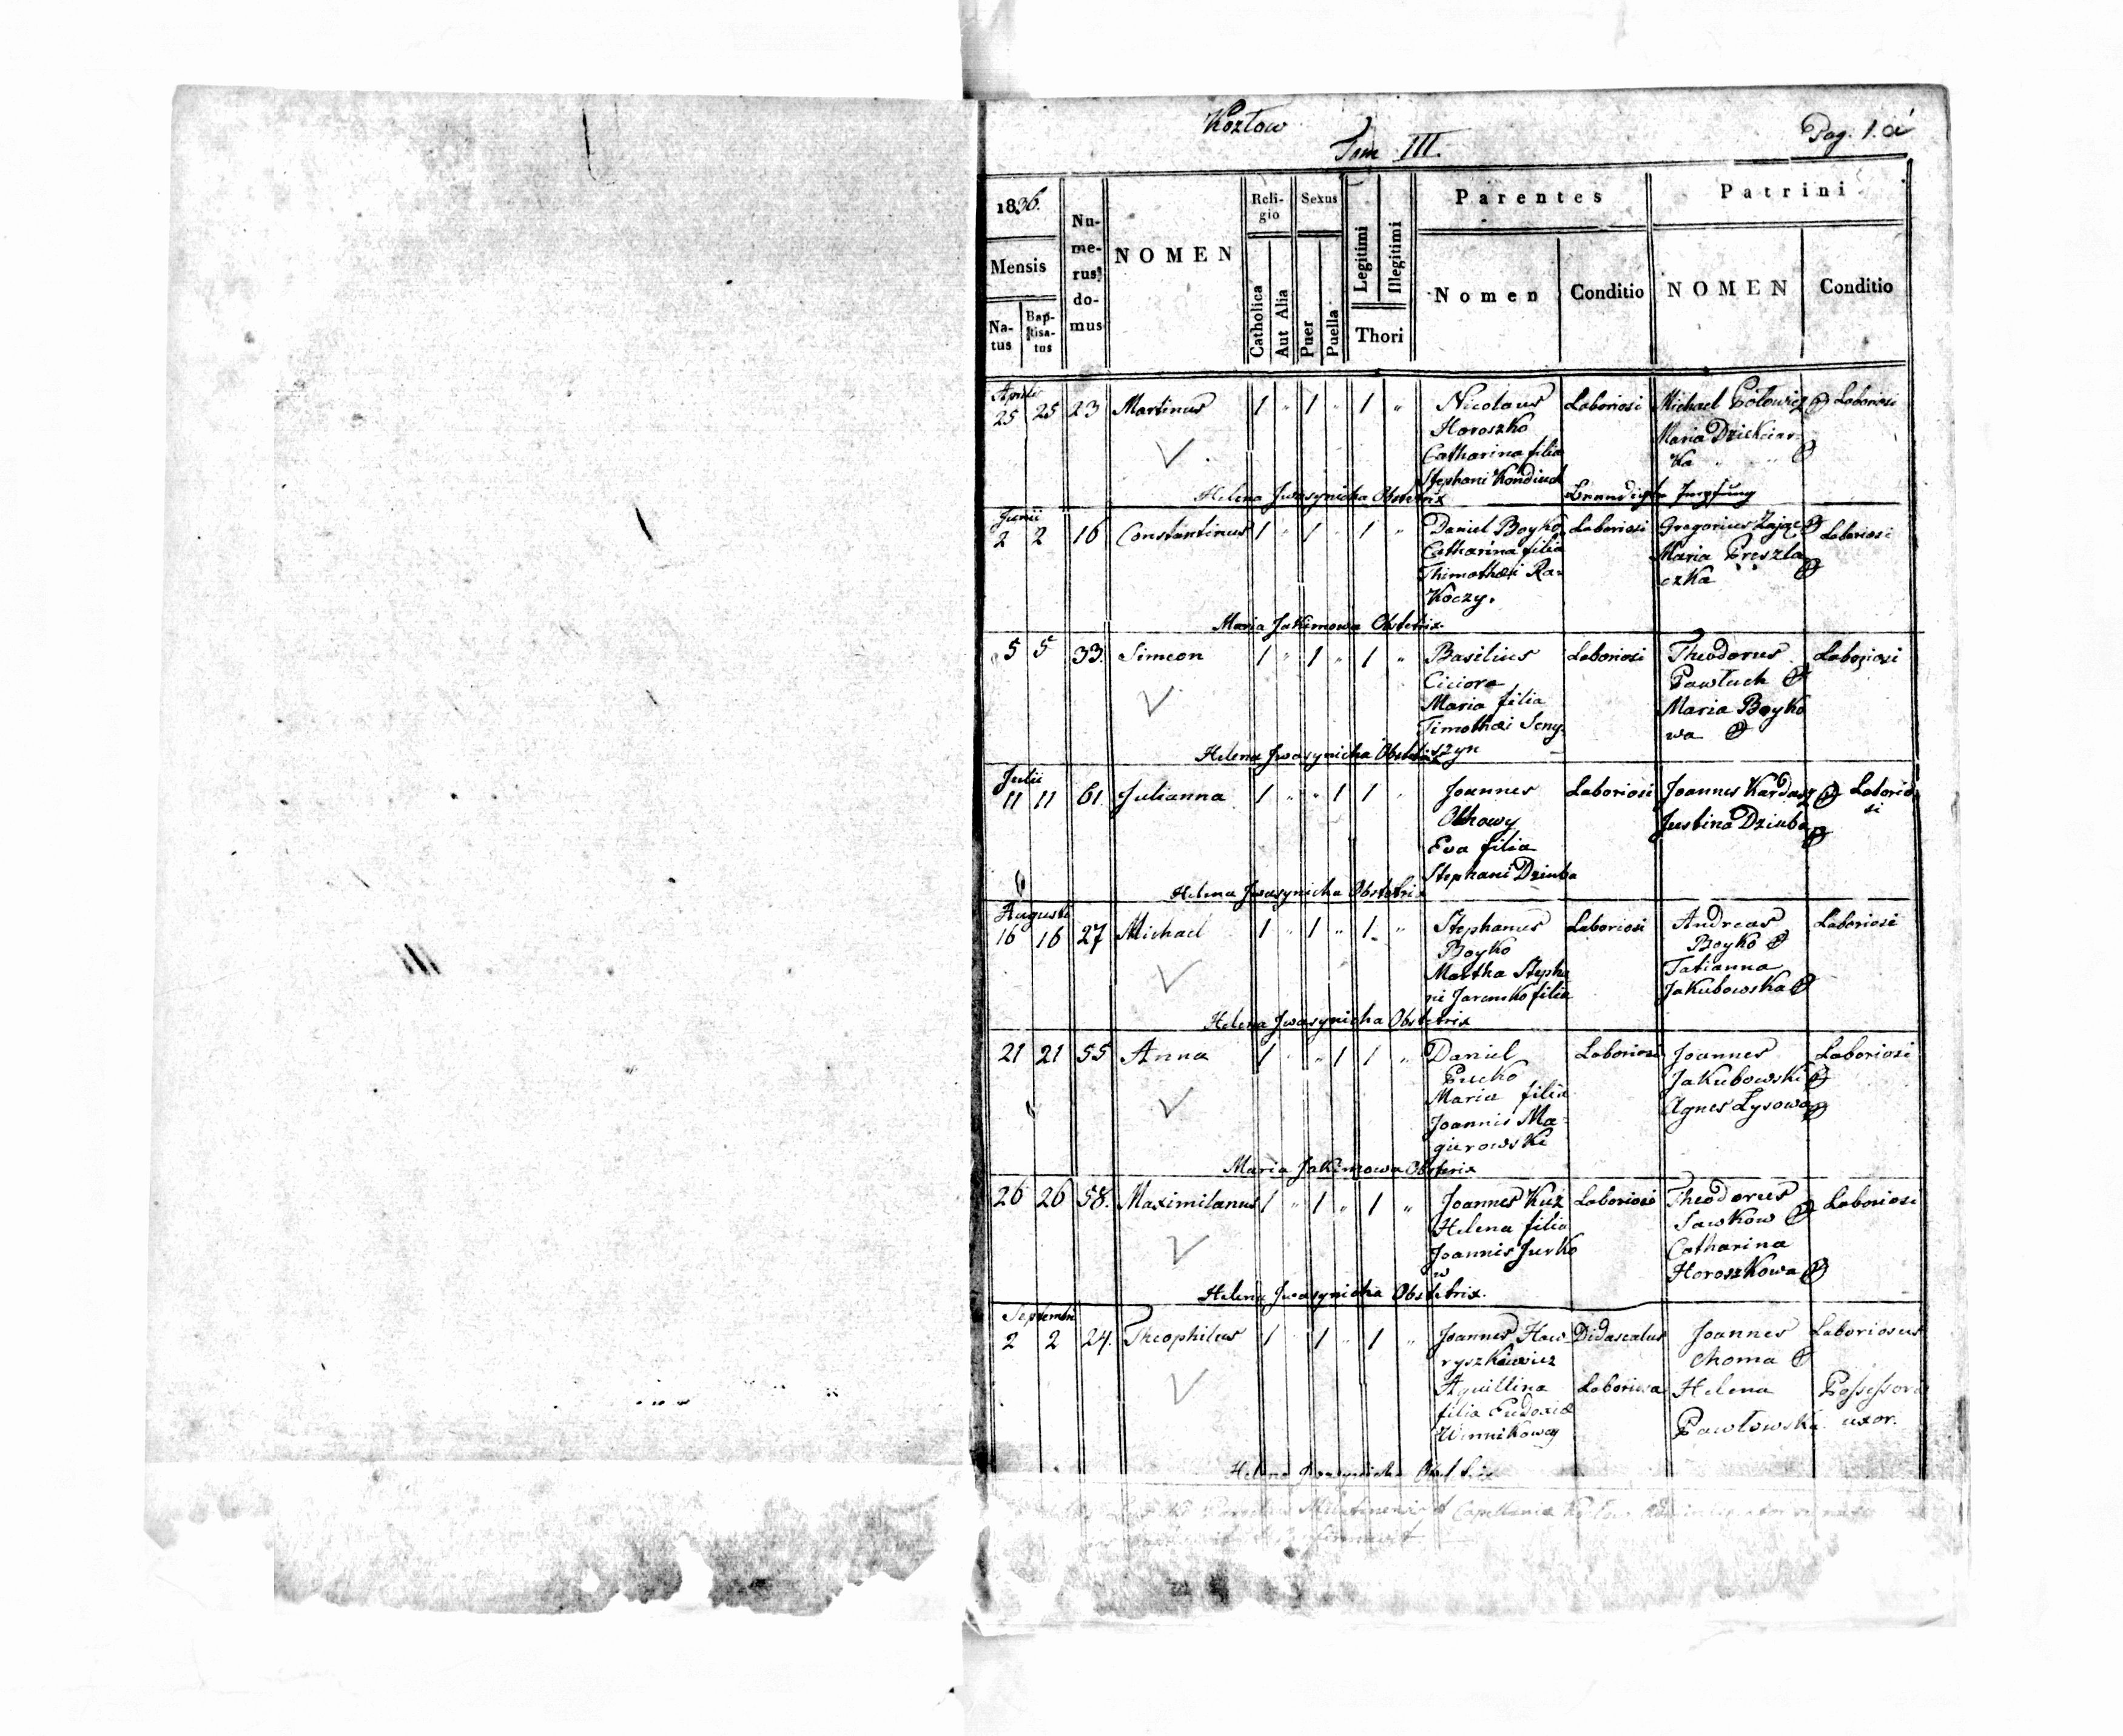 Kozłow
Tom III.
Pag. 1.a
1836.
Mensis
Na-
tus
Bap-
tisa-
tus
Nu-
me-
rus
do-
mus
NOMEN
Reli-
gio
Catholica
Aut Alia
Sexus
Puer
Puella
Legitimi
Illegitimi
Thori
Parentes
Nomen
Conditio
Patrini
NOMEN
Conditio
Aprilis
25 25 23 Martinus 1 " 1 " 1 " Nicolaus Laboriosi Michael Laboriosi
Horoszko
Maria
Catharina filia
ka
Stephani
Helena Jwasynicha Obstetrix
Junii
2 2 16 Constantinus 1 " 1 " 1 " Daniel Boyko Laboriosi Gregorius Zając Laboriosi
Catharina filia
Maria
Thimothæi Ra-
czka
koczy.
Maria Jakimowa Obstetrix
5 5 33. Simeon 1 " 1 " 1 " Basilius Laboriosi Theodorus Laboriosi
Ciciora
Pawluch
Maria filia
Maria Boyko
Timothæi Seny-
wa
szyn
Helena Jwasynicha Obstetrix
Julii
11 11 61. Julianna 1 " " 1 1 " Joannes Laboriosi Joannes Kardasz Laborio
si
Justina Dziuba
Eva filia
Stephani Dziuba
Helena Jwasynicha Obstetrix
Augusti
16 16 27 Michael 1 " 1 " 1 " Stephanus Laboriosi Andreas Laboriosi
Boyko
Boyko
Martha Stepha
Tatianna
ni Jaremko filia
Jakubowska
Helena Jwasynicha Obstetrix
21 21 55 Anna 1 " " 1 1 " Daniel Laboriosi Joannes Laboriosi
Jakubowski
Maria filia
Agnes Lysowa
Joannis Ma-
gierowski
Maria Jakimowa Obstetrix
26 26 58. Maximilanus 1 " 1 " 1 " Joannes Kuz Laboriosi Theodorus Laboriosi
Helena filia
Sawkow
Joannis Jurko
Catharina
w
Horoszkowa
Helena Jwasynicha Obstetrix.
Septembri
2 2 24. Theophilus 1 " 1 " 1 " Joannes Haw- Didascalus Joannes Laboriosus
ryszkiewicz
Choma
Aquillina Laboriosa Helena Possessoris
filia Eudoxiæ
Pawłowska uxor.
Winnikowey
Helena Jwasynicha